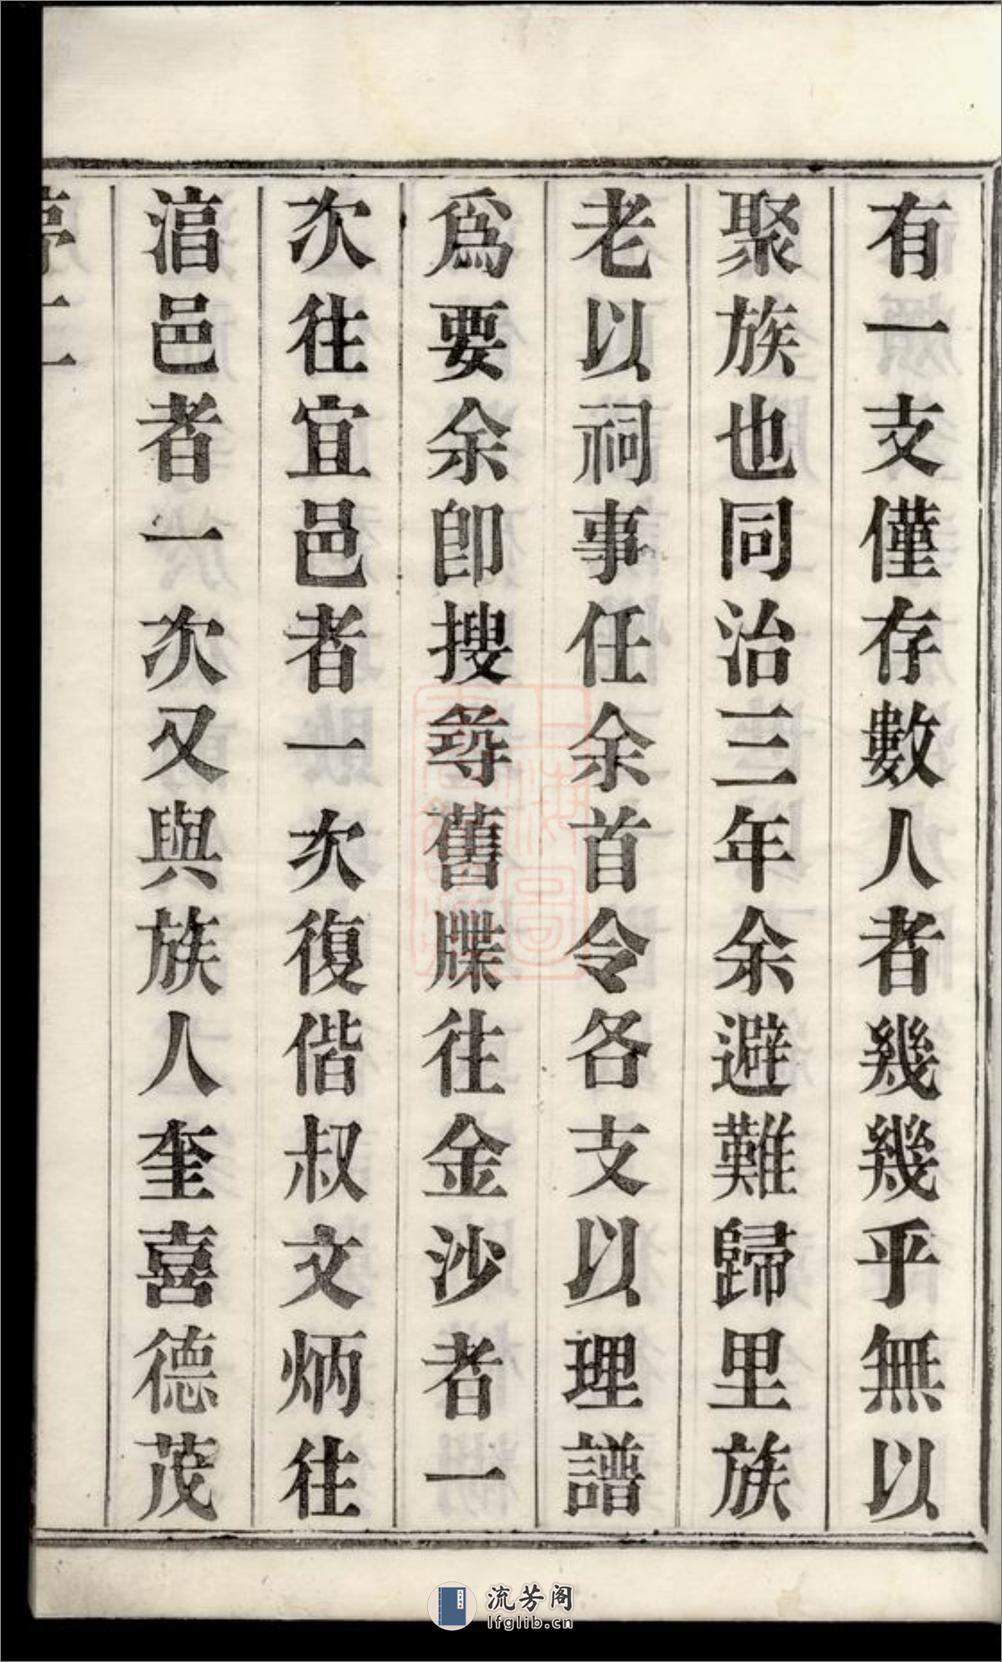 有一支僅存數人者幾幾乎無以
聚族也同治三年余避難歸里族
老以祠事任余首令各支以理譜
爲要余卽搜尋舊牒往金沙者一
次往宜邑者一次復偕叔文炳往
溧邑者一次又與族人奎喜德茂
流芳阁
lfglib.cn